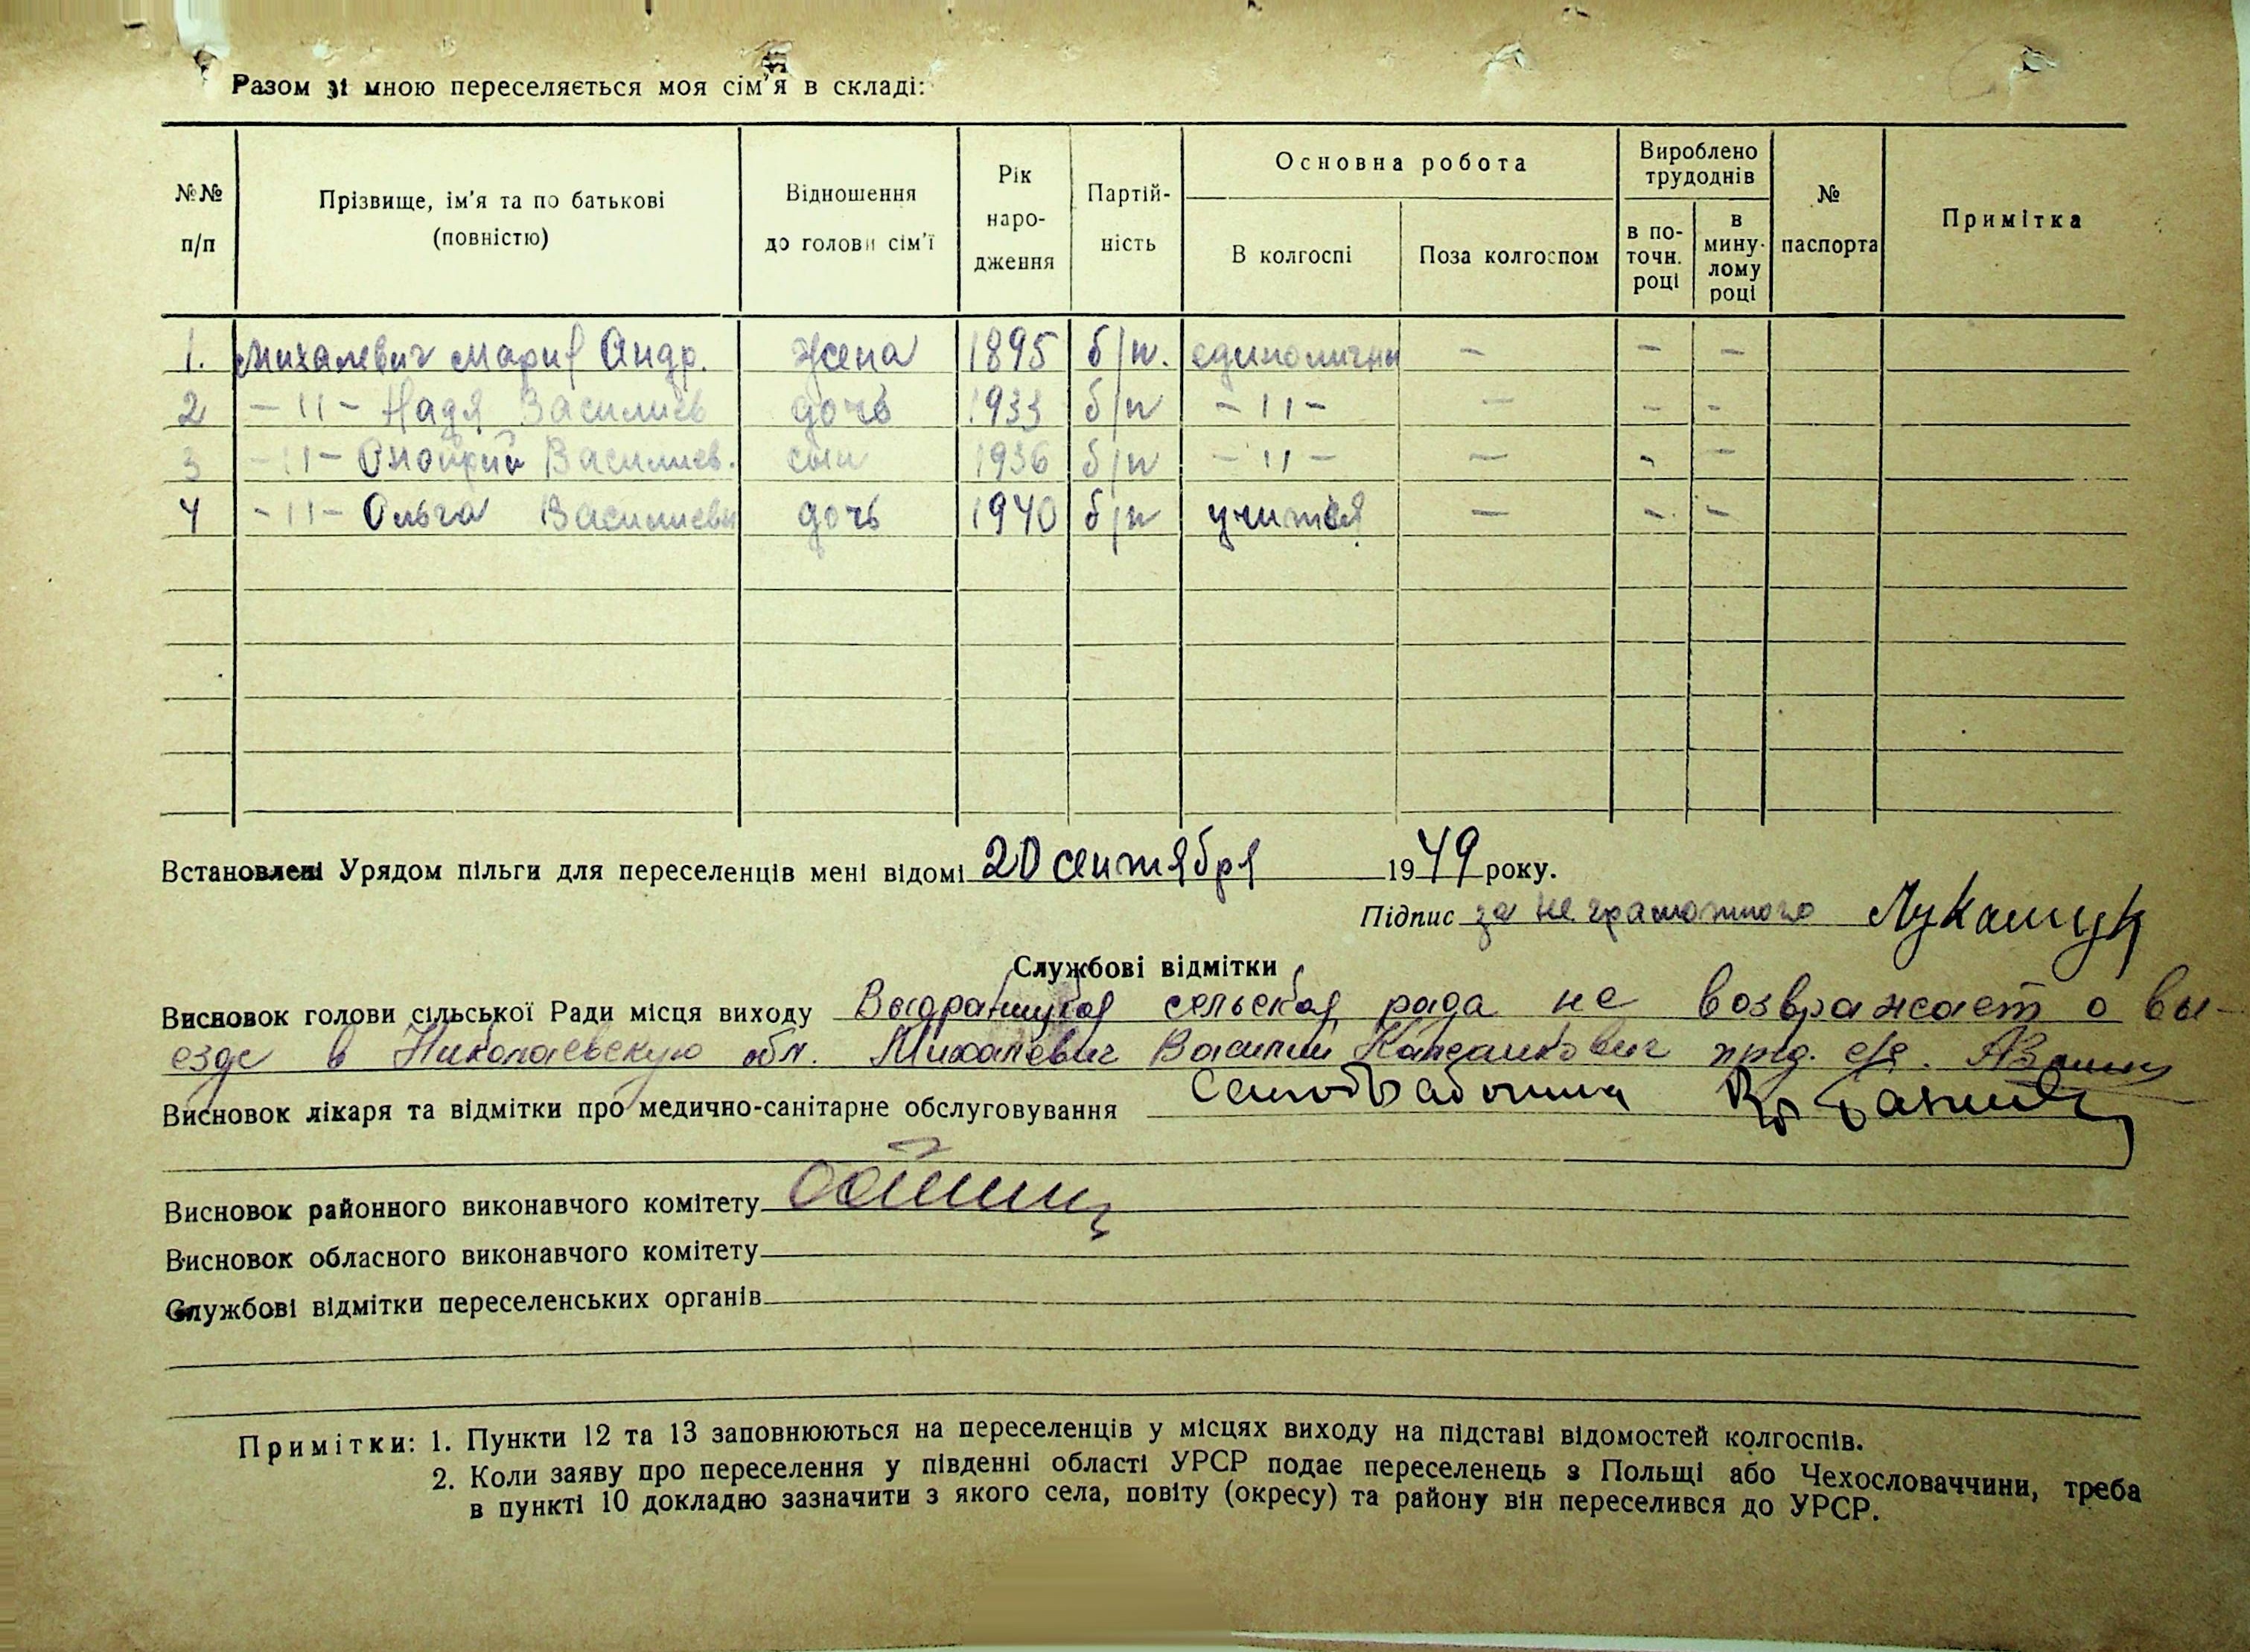 Разом зі мною переселяється моя сім'я в складі:
№№ п/п | Прізвище, ім'я та по батькові (повністю) | Відношення до голови сім'ї | Рік народження | Партійність | Основна робота | Вироблено трудоднів | № паспорта | Примітка
В колгоспі | Поза колгоспом | в поточн. році | в минулому році
1. Михалевич Мария Андр. жена 1895 б/п. единоличн - - -
2 -"- Надя Василиев дочь 1933 б/п -"- - - -
3 -"- Онойрий Василиев. сын 1936 б/п -"- - - -
4 -"- Ольга Василиевн дочь 1940 б/п учится - - -
Встановлені Урядом пільги для переселенців мені відомі 20 сентября 1949 року.
Підпис за неграмотного Лукашук
Службові відмітки
Висновок голови сільської Ради місця виходу сельская рада не возвражает о вы-
езде в Николаевскую обл. Михалевич Василий пред. с/с.
Висновок лікаря та відмітки про медично-санітарне обслуговування
Висновок районного виконавчого комітету
Висновок обласного виконавчого комітету
Службові відмітки переселенських органів
Примітки: 1. Пункти 12 та 13 заповнюються на переселенців у місцях виходу на підставі відомостей колгоспів.
2. Коли заяву про переселення у південні області УРСР подає переселенець з Польщі або Чехословаччини, треба
в пункті 10 докладно зазначити з якого села, повіту (окресу) та району він переселився до УРСР.